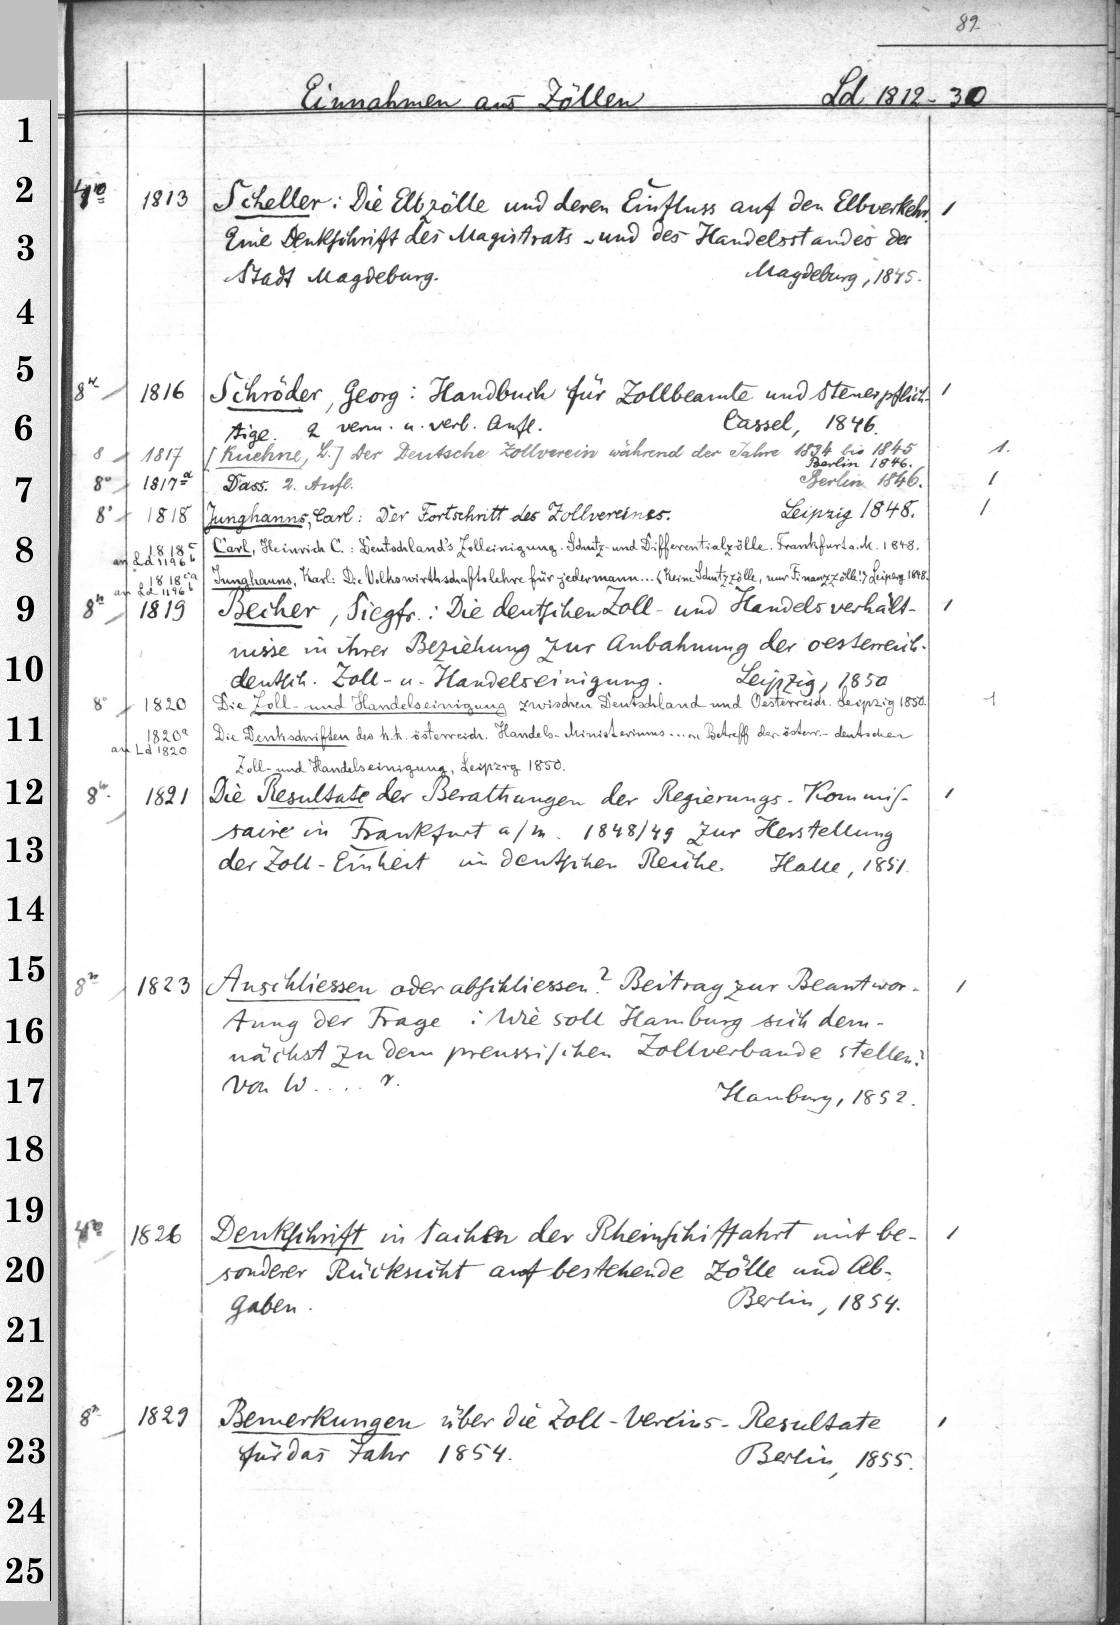 89
Einnahmen aus Zöllen Ld 1812-30
1
2
3
4
5
6
7
8
9
10
11
12
13
14
15
16
17
18
19
20
21
22
23
24
25
1813 Scheller: Die Elbzölle und deren Einfluss auf den Elbverkehr. 1
Eine Denkschrift des Magistrats und des Handelsstandes der
Stadt Magdeburg. Magdeburg, 1845.
8° 1816 Schröder, Georg: Handbuch für Zollbeamte und Steuerpflich- 1
tige. 2 verm. u. verb. Aufl. Cassel, 1846.
8 1817 [Kuehne, L.] Der Deutsche Zollverein während der Jahre 1834 bis 1845 1.
Berlin 1846.
8° 1817a Dass. 2. Aufl. Berlin 1846. 1
8° 1818 Junghanns, Carl: Der Fortschritt des Zollvereines. Leipzig 1848. 1
1818c Carl, Heinrich C.: Deutschland's Zolleinigung. Schutz- und Differentialzölle. Frankfurt a. M. 1848.
an Ld 1196b
1818ca Junghanns, Karl: Die Volkswirthschaftslehre für jedermann... (Keine Schutzzölle, nur Finanzzölle!) Leipzig 1848.
an Ld 1196b
8° 1819 Becher, Siegfr.: Die deutschen Zoll- und Handelsverhält- 1
nisse in ihrer Beziehung zur Anbahnung der oesterreich.
deutsch. Zoll- u. Handelseinigung. Leipzig, 1850
8° 1820 Die Zoll- und Handelseinigung zwischen Deutschland und Oesterreich. Leipzig 1850. 1
1820a Die Denkschriften des k.k. österreich. Handels-Ministeriums ... Betreff der österr.- deutschen
an Ld 1820
Zoll- und Handelseinigung, Leipzig 1850.
8° 1821 Die Resultate der Berathungen der Regierungs-Kommis- 1
saire in Frankfurt a/m. 1848/49 zur Herstellung
der Zoll-Einheit im deutschen Reiche. Halle, 1851.
8° 1823 Anschliessen oder abschliessen? Beitrag zur Beantwor- 1
tung der Frage: Wie soll Hamburg sich dem-
nächst zu dem preussischen Zollverbande stellen?
Von W.... r. Hamburg, 1852.
4° 1826 Denkschrift in Sachen der Rheinschiffahrt mit be- 1
sonderer Rücksicht auf bestehende Zölle und Ab-
gaben. Berlin, 1854.
8° 1829 Bemerkungen über die Zoll-Vereins-Resultate 1
für das Jahr 1854. Berlin, 1855.